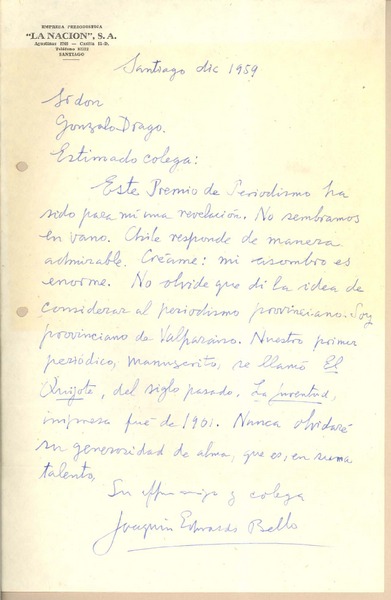 EMPRESA PERIODISTICA
"LA NACION", S. A.
Agustinas 1269 — Casilla 81-D.
Teléfono 82222
SANTIAGO
Santiago dic 1959
Sr don
Gonzalo Drago.
Estimado colega:
Este Premio de Periodismo ha
sido para mí una revelación. No sembramos
en vano. Chile responde de manera
admirable. Créame: mi asombro es
enorme. No olvide que di la idea de
considerar al periodismo provinciano. Soy
provinciano de Valparaíso. Nuestro primer
periódico, manuscrito, se llamó El
Quijote, del siglo pasado. La Juventud,
impresa fué de 1901. Nunca olvidaré
su generosidad de alma, que es, en suma
talento,
Su affmo amigo y colega
Joaquín Edwards Bello